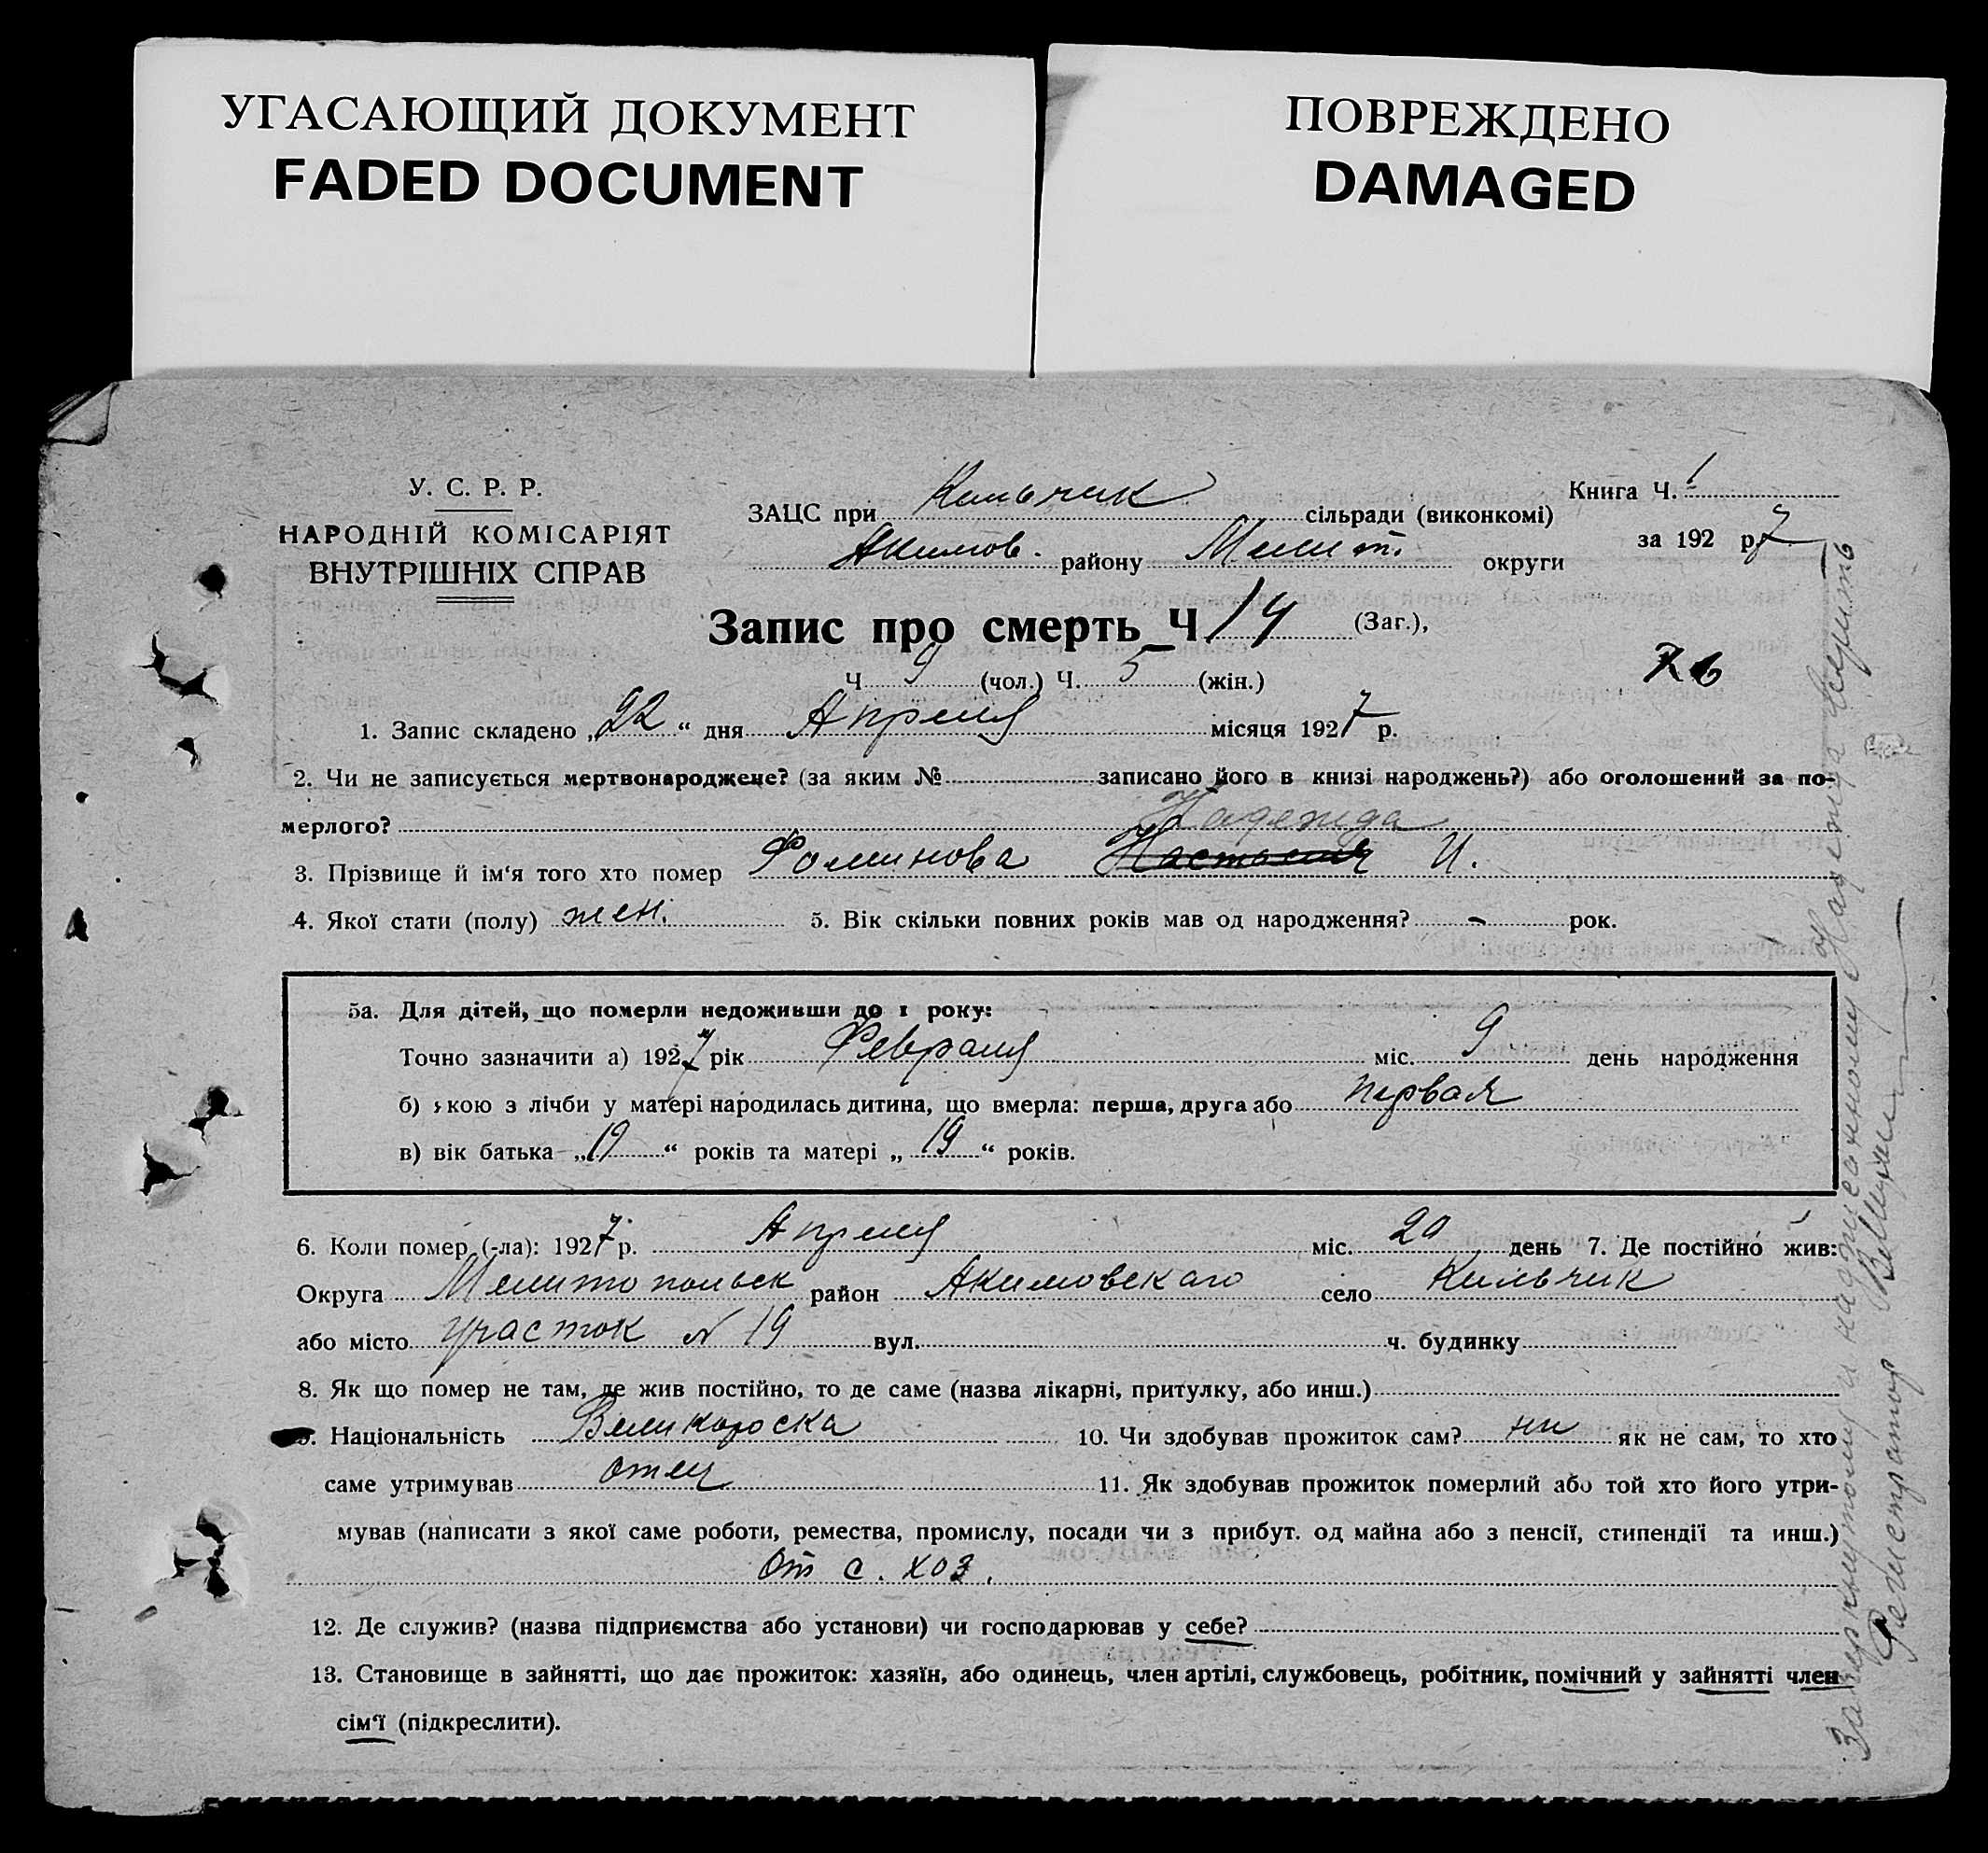 УГАСАЮЩИЙ ДОКУМЕНТ
FADED DOCUMENT
ПОВРЕЖДЕНО
DAMAGED
У. С. Р. Р.
НАРОДНІЙ КОМІСАРІЯТ
ВНУТРІШНІХ СПРАВ
ЗАЦС при Кильчик сільради (виконкомі)
Акимов. району Мелит. округи
Книга Ч. 1
за 192 р. 7
Запис про смерть Ч 14 (Заг.),
Ч 9 (чол.) Ч. 5 (жін.)
1. Запис складено „22“ дня Апреля місяця 1927 р.
2. Чи не записується мертвонароджене? (за яким № записано його в книзі народжень?) або оголошений за по-
мерлого?
Надежда
3. Прізвище й ім‘я того хто помер Фоминова Настасия И.
4. Якої стати (полу) жен. 5. Вік скільки повних років мав од народження? - рок.
5а. Для дітей, що померли недоживши до 1 року:
Точно зазначити а) 1927 рік Февраля міс. 9 день народження
б) якою з лічби у матері народилась дитина, що вмерла: перша, друга або первая
в) вік батька „19“ років та матері „19“ років.
6. Коли помер (-ла): 1927 р. Апреля міс. 20 день 7. Де постійно жив:
Округа Мелитопольск район Акимовскаго село Кильчик
або місто участок N 19 вул. ч. будинку
8. Як що помер не там, де жив постійно, то де саме (назва лікарні, притулку, або инш.)
9. Національність Великороска 10. Чи здобував прожиток сам? ни як не сам, то хто
саме утримував отец 11. Як здобував прожиток померлий або той хто його утри-
мував (написати з якої саме роботи, ремества, промислу, посади чи з прибут. од майна або з пенсії, стипендії та инш.)
От с. хоз.
12. Де служив? (назва підприємства або установи) чи господарював у себе?
13. Становище в зайнятті, що дає прожиток: хазяїн, або одинець, член артілі, службовець, робітник, помічний у зайнятті член
сім‘ї (підкреслити).
Зачеркнутому и надписанному Надежда верить
Регистратор